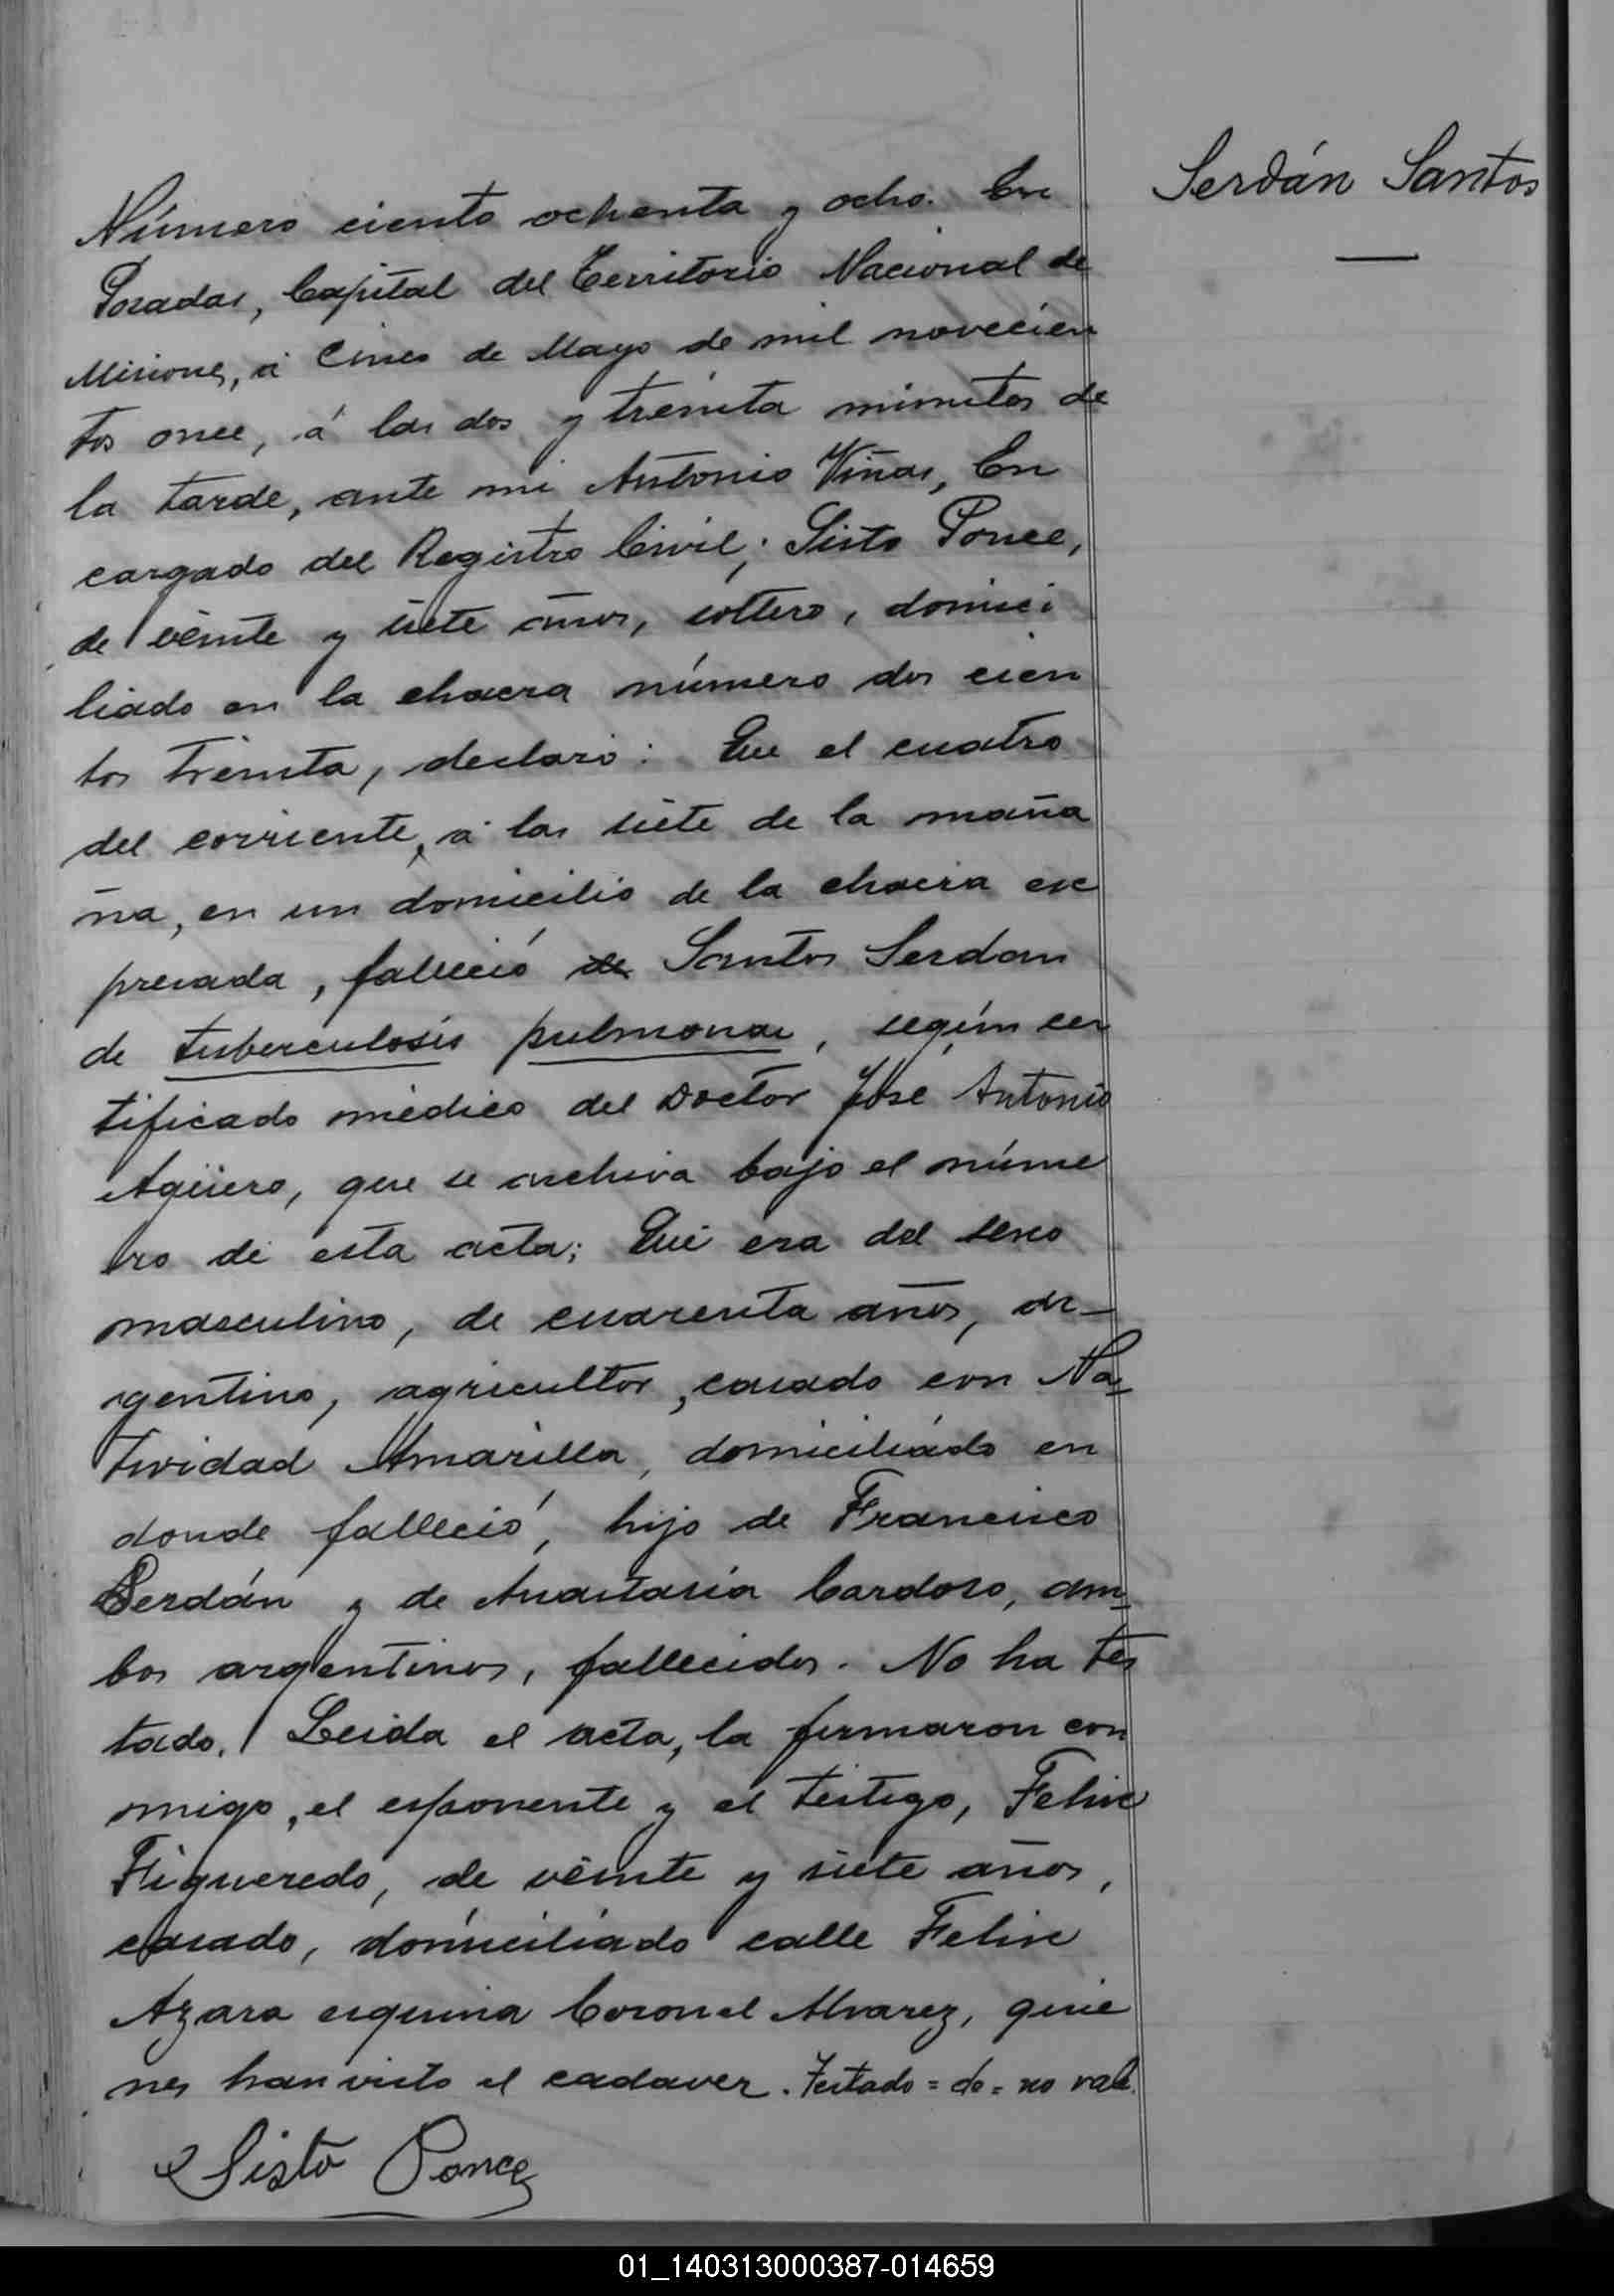 Serdán Santos
Número ciento ochenta y ocho. En
Posadas, Capital del Territorio Nacional de
Misiones, á Cinco de Mayo de mil novecien
tos once, á las dos y treinta minutos de
la tarde, ante mi Antonio Viñas, En
cargado del Registro Civil; Sisto Ponce,
de veinte y siete años, soltero, domici
liado en la chacra número dos cien
tos treinta, declaró: Que el cuatro
del corriente, á las siete de la maña
na, en un domicilio de la chacra ex
presada, falleció de Santos Serdan
de tuberculosis pulmonar, según cer
tificado médico del Doctor José Antonio
Agüero, que se archiva bajo el núme
ro de esta acta; Que era del sexo
masculino, de cuarenta años, ar-
gentino, agricultor, casado con Na-
tividad Amarilla, domiciliado en
donde falleció, hijo de Francisco
Serdán y de Anastasia Cardoso, am-
bos argentinos, fallecidos. No ha tes
tado. Leida el acta, la firmaron con
migo, el esponente y el testigo, Felix
Figueredo, de veinte y siete años,
casado, domiciliado calle Felix
Azara esquina Coronel Alvarez, quie
nes han visto el cadaver. Testado = de = no vale.
Sisto Ponce
01_140313000387-014659